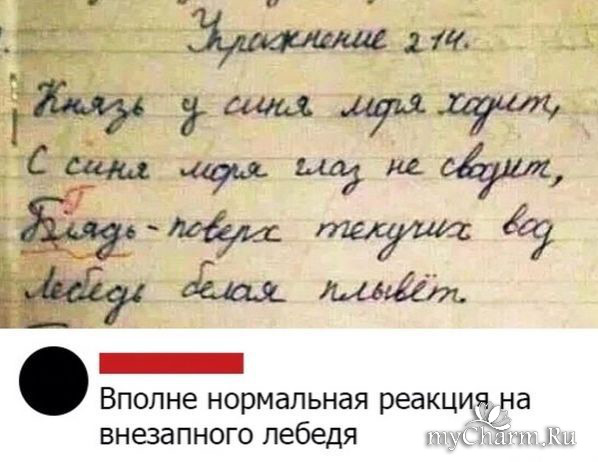 Упражнение 214.
Князь у синя моря ходит,
С синя моря глаз не сводит,
Г
Блядь - поверх текучих вод
Лебедь белая плывёт.
Вполне нормальная реакция на
внезапного лебедя
myCharm.Ru